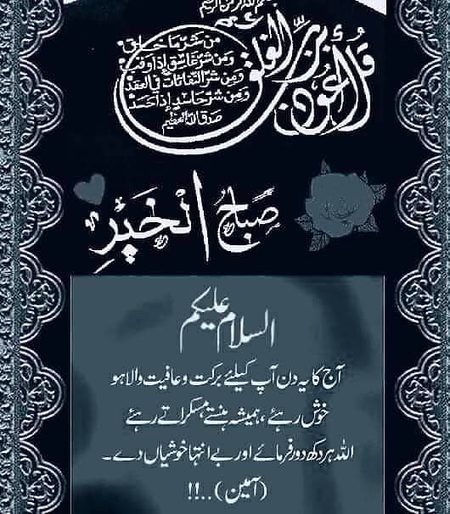 بسم الله الرحمن الرحيم
قل أعوذ برب الفلق
من شر ما خلق
ومن شر غاسق إذا وقب
ومن شر النفاثات في العقد
ومن شر حاسد إذا حسد
صدق الله العظيم
صباح الخير
السلام علیکم
آج کا یہ دن آپ کیلئے برکت و عافیت والا ہو
خوش رہئے، ہمیشہ ہنستے مسکراتے رہئے
اللہ ہر دکھ دور فرمائے اور بے انتہا خوشیاں دے۔
(آمین)..!!